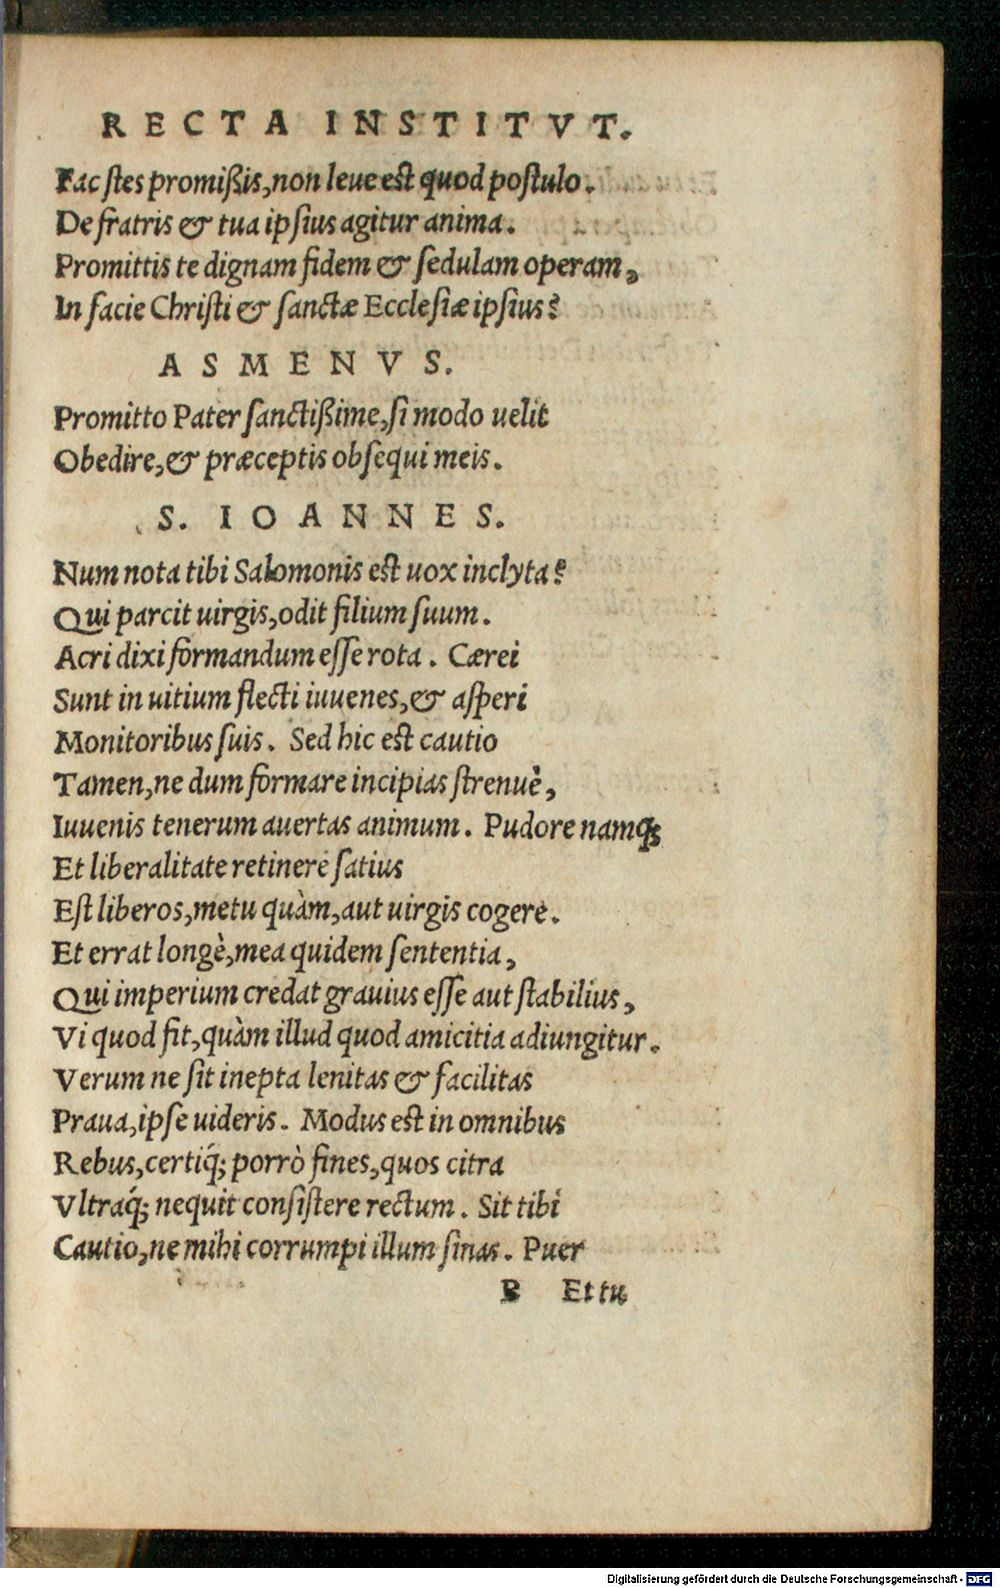 RECTA INSTITVT.
Fac ſtes promißis, non leue est quod poſtulo.
De fratris & tua ipſius agitur anima.
Promittis te dignam fidem & ſedulam operam,
In facie Chriſti & ſanctæ Eccleſiæ ipſius?
ASMENVS.
Promitto Pater ſanctißime, ſi modo uelit
Obedire, & præceptis obſequi meis.
S. IOANNES.
Num nota tibi Salomonis est uox inclyta?
Qui parcit uirgis, odit filium ſuum.
Acri dixi formandum eſſe rota. Cærei
Sunt in uitium flecti iuuenes, & aſperi
Monitoribus ſuis. Sed hic est cautio
Tamen, ne dum formare incipias ſtrenuè,
Iuuenis tenerum auertas animum. Pudore namq́;
Et liberalitate retinere ſatius
Eſt liberos, metu quàm, aut uirgis cogere.
Et errat longè, mea quidem ſententia,
Qui imperium credat grauius eſſe aut ſtabilius,
Vi quod fit, quàm illud quod amicitia adiungitur.
Verum ne ſit inepta lenitas & facilitas
Praua, ipſe uideris. Modus est in omnibus
Rebus, certiq́; porrò fines, quos citra
Vltraq́; nequit conſiſtere rectum. Sit tibi
Cautio, ne mihi corrumpi illum ſinas. Puer
B Et tu
Digitalisierung gefördert durch die Deutsche Forschungsgemeinschaft - DFG